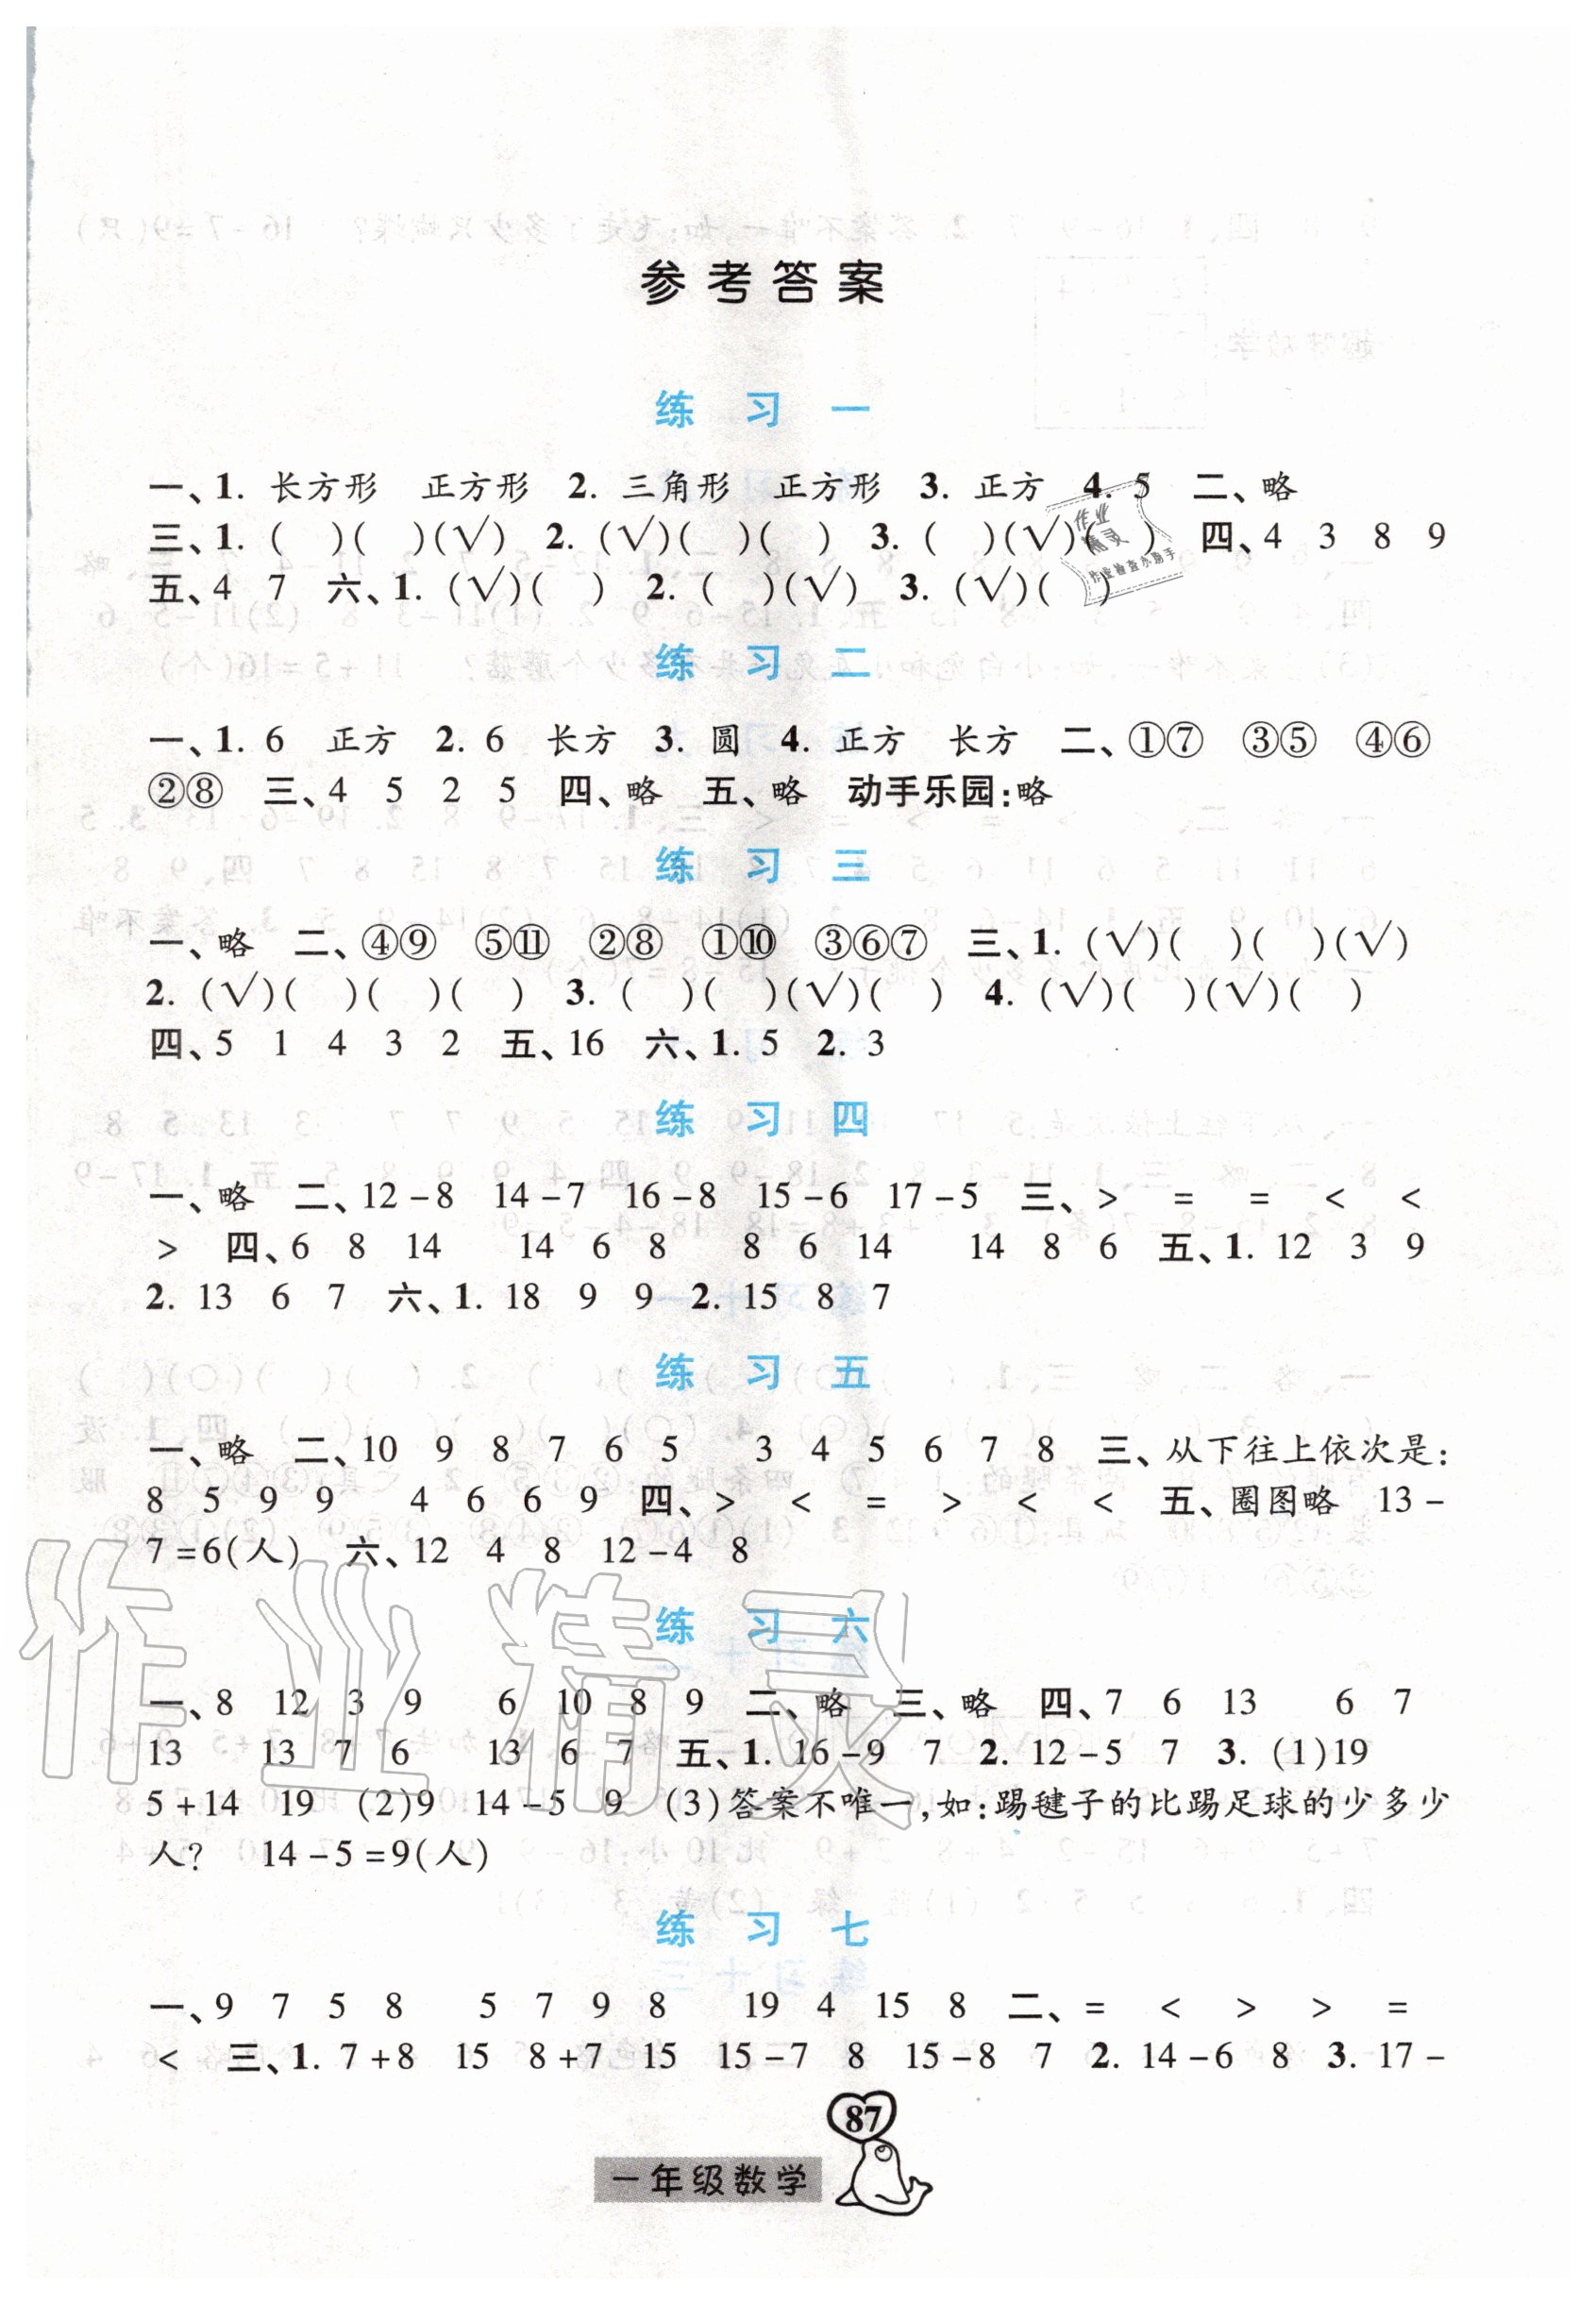 参考答案
练 习 一
一、1. 长方形 正方形 2. 三角形 正方形 3. 正方 4. 5 二、略
三、1. ( )( )(√) 2. (√)( )( ) 3. ( )(√)( ) 四、4 3 8 9
五、4 7 六、1. (√)( ) 2. ( )(√) 3. (√)( )
作业
精灵
作业检查小助手
练 习 二
一、1. 6 正方 2. 6 长方 3. 圆 4. 正方 长方 二、①⑦ ③⑤ ④⑥
②⑧ 三、4 5 2 5 四、略 五、略 动手乐园:略
练 习 三
一、略 二、④⑨ ⑤⑪ ②⑧ ①⑩ ③⑥⑦ 三、1. (√)( )( )(√)
2. (√)( )( )( ) 3. ( )( )(√)( ) 4. (√)( )(√)( )
四、5 1 4 3 2 五、16 六、1. 5 2. 3
练 习 四
一、略 二、12-8 14-7 16-8 15-6 17-5 三、> = = < <
> 四、6 8 14 14 6 8 8 6 14 14 8 6 五、1. 12 3 9
2. 13 6 7 六、1. 18 9 9 2. 15 8 7
练 习 五
一、略 二、10 9 8 7 6 5 3 4 5 6 7 8 三、从下往上依次是:
8 5 9 9 4 6 6 9 四、> < = > < < 五、圈图略 13-
7=6(人) 六、12 4 8 12-4 8
作业精灵
练 习 六
一、8 12 3 9 6 10 8 9 二、略 三、略 四、7 6 13 6 7
13 13 7 6 13 6 7 五、1. 16-9 7 2. 12-5 7 3. (1)19
5+14 19 (2)9 14-5 9 (3)答案不唯一,如:踢毽子的比踢足球的少多少
人? 14-5=9(人)
练 习 七
一、9 7 5 8 5 7 9 8 19 4 15 8 二、= < > > =
< 三、1. 7+8 15 8+7 15 15-7 8 15-8 7 2. 14-6 8 3. 17-
87
一年级数学